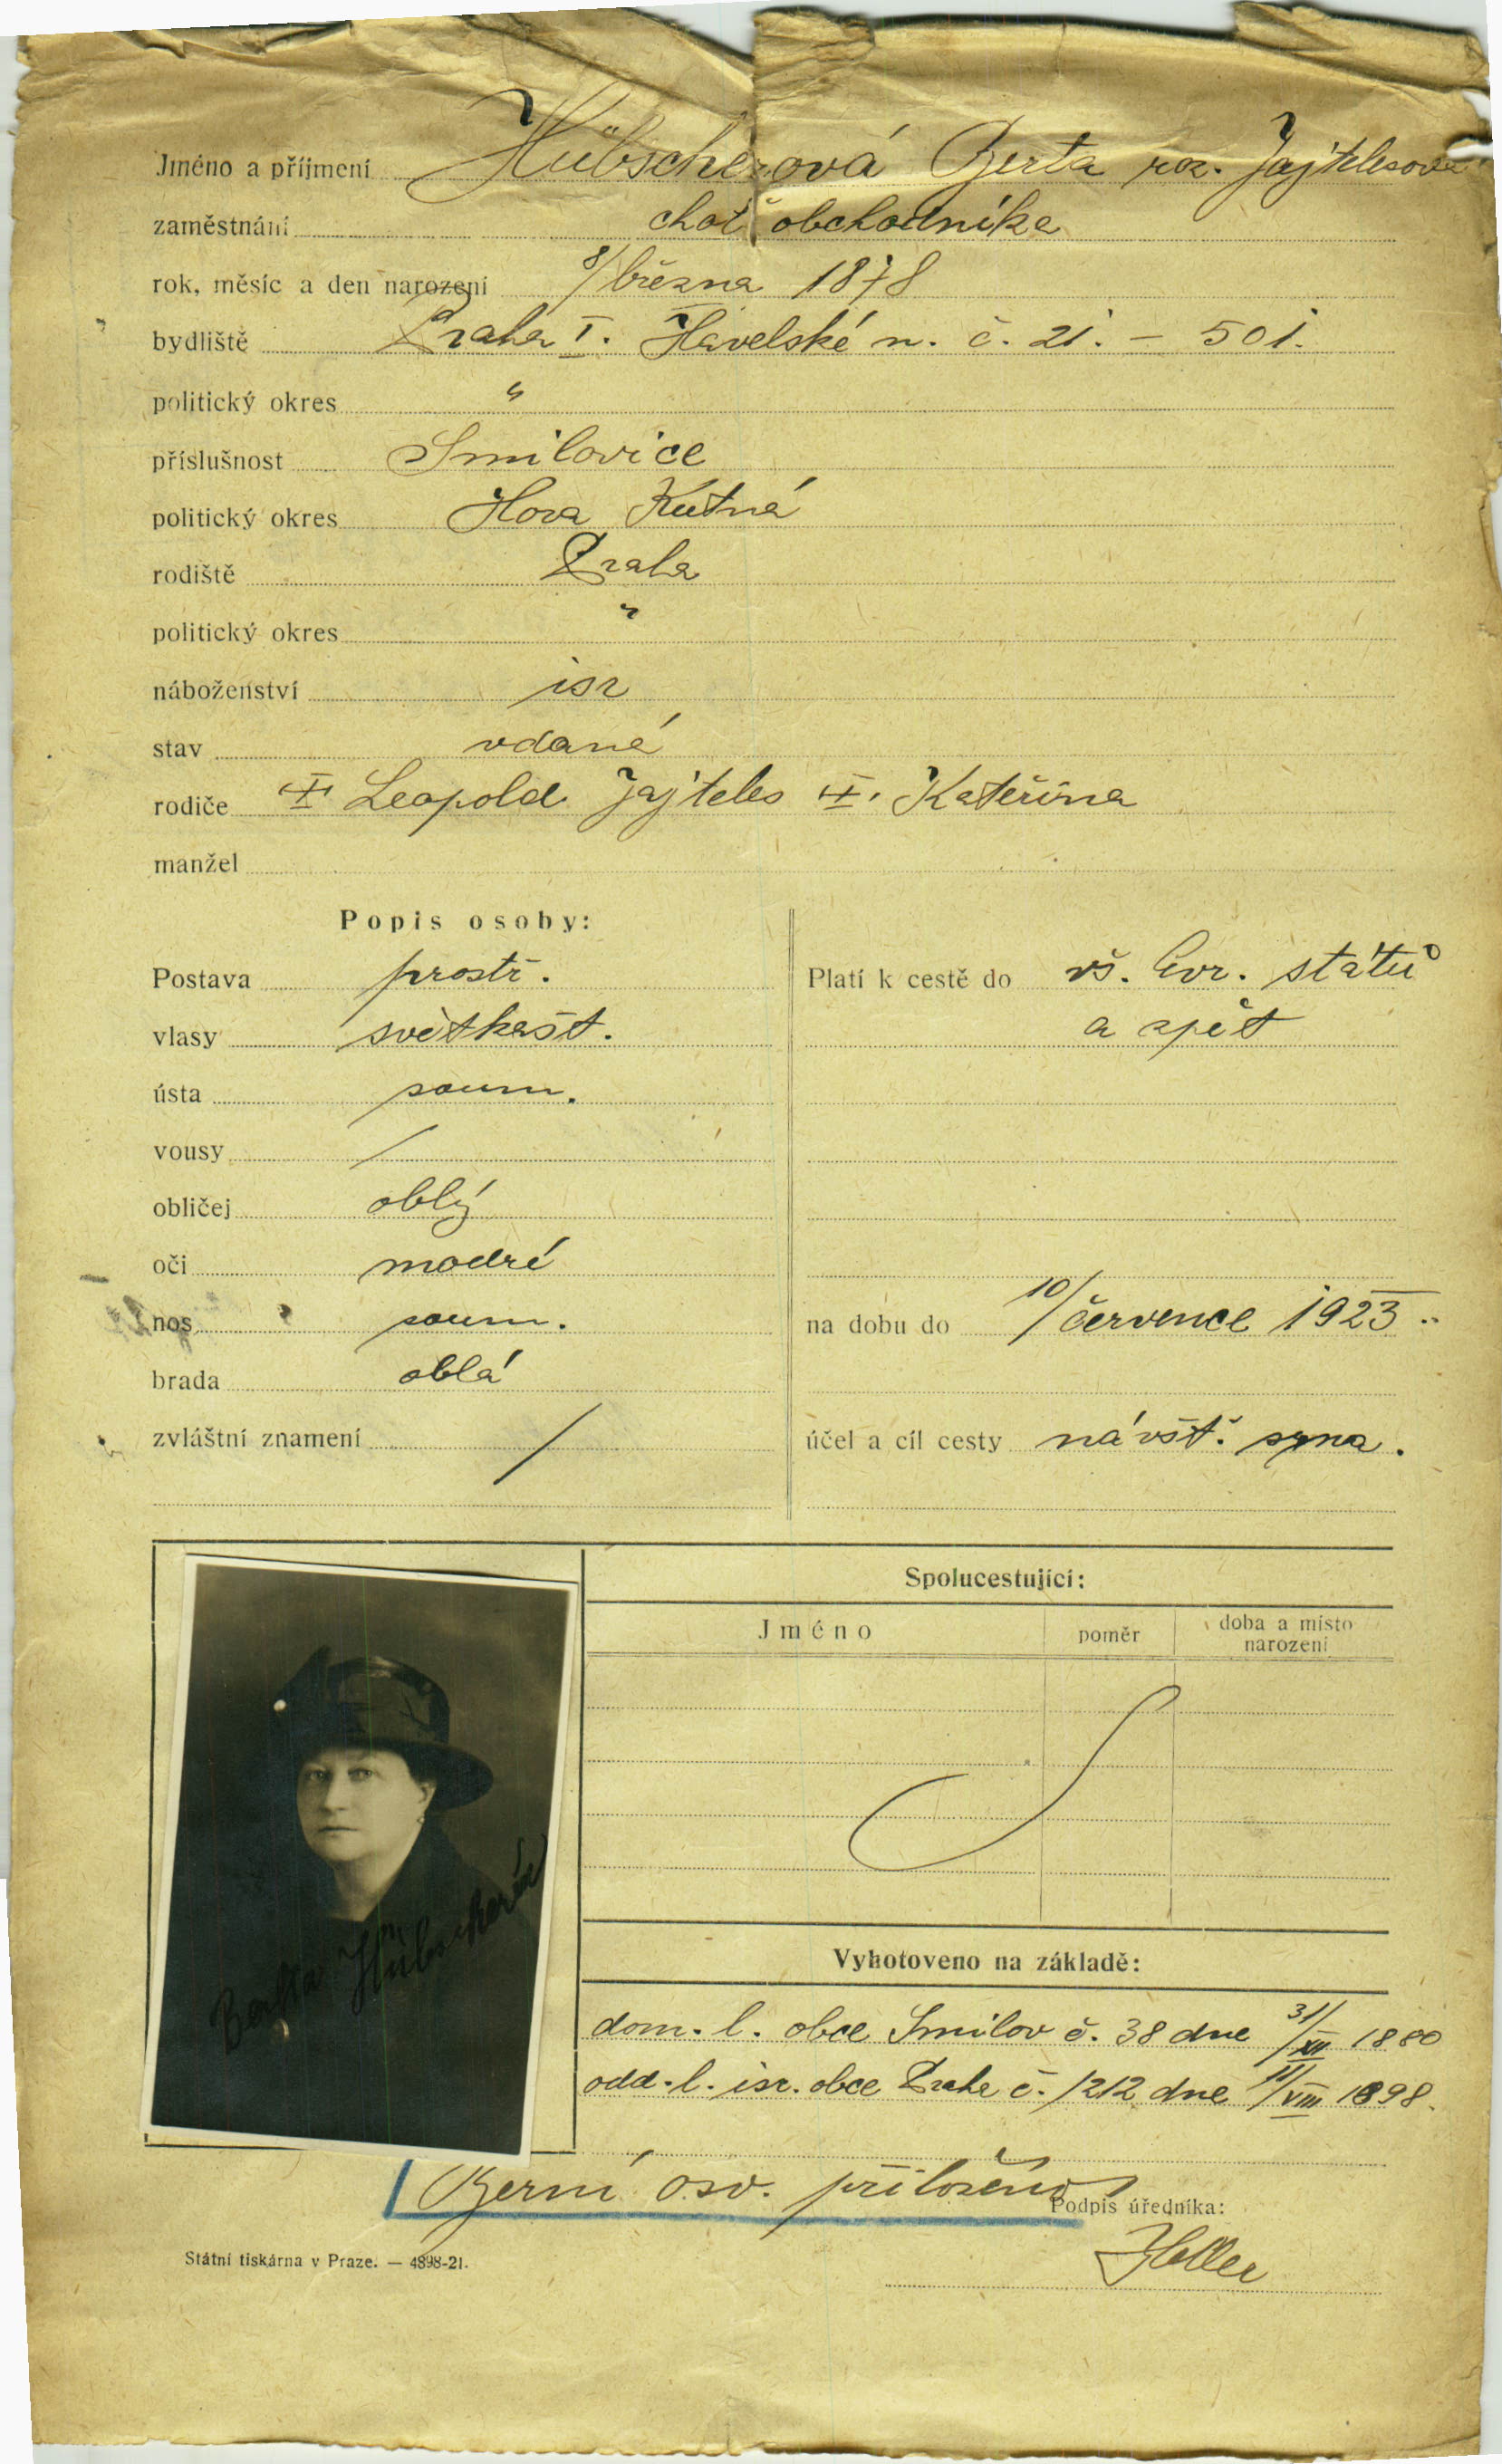 Jméno a příjmení Hübscherová Berta roz. Jajtelesová
zaměstnání choť obchodníka
rok, měsíc a den narození 8/března 1878
bydliště Praha I. Havelská n. č. 21. – 501.
politický okres "
příslušnost Smilovice
politický okres Hora Kutná
rodiště Praha
politický okres "
náboženství isr
stav vdaná
rodiče Leopold Jajteles Kateřina
manžel
Popis osoby:
Postava prostř.
vlasy světkašt.
ústa soum.
vousy /
obličej oblý
oči modré
nos soum.
brada oblá
zvláštní znamení /
Platí k cestě do vš. Evr. států
a zpět
na dobu do 10/července 1923
účel a cíl cesty návšt. syna.
Spolucestující:
Jméno poměr doba a místo narození
Berta Hübscherová
Vyhotoveno na základě:
dom. l. obce Smilov č. 38 dne 31/XII 1880
odd. l. isr. obce Praha č. 1212 dne 11/VIII 1898.
Berní osv. přiloženo
Podpis úředníka:
Heller
Státní tiskárna v Praze. — 4898-21.